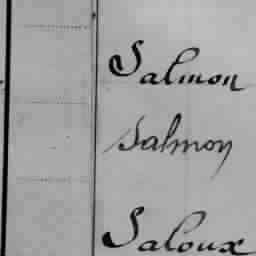 Salmon
Salmon
Saloux